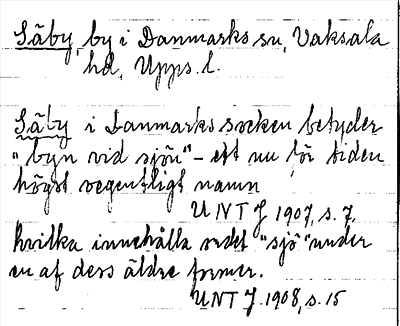 Säby, by i Danmarks sn, Vaksala
hd, Upps. l.
Säby i Danmarks socken betyder
"byn vid sjön" – ett nu för tiden
högst oegentligt namn
UNT J 1907, s. 7.
hvilka innehålla ordet "sjö" under
en af dess äldre former.
UNT J. 1908, s. 15